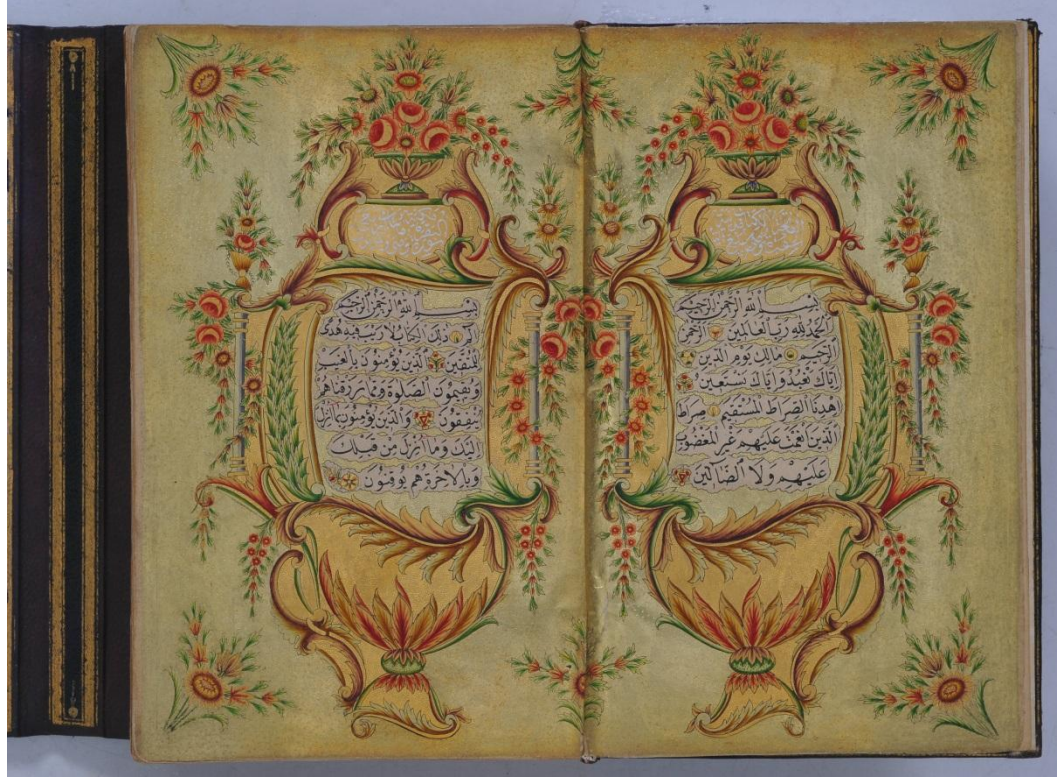 بِسْمِ اللهِ الرَّحْمٰنِ الرَّحِيمِ
اَلْحَمْدُ لِلّٰهِ رَبِّ الْعَالَمِينَ اَلرَّحْمٰنِ
الرَّحِيمِ مَالِكِ يَوْمِ الدِّينِ
اِيَّاكَ نَعْبُدُ وَاِيَّاكَ نَسْتَعِينُ
اِهْدِنَا الصِّرَاطَ الْمُسْتَقِيمَ صِرَاطَ
الَّذِينَ اَنْعَمْتَ عَلَيْهِمْ غَيْرِ الْمَغْضُوبِ
عَلَيْهِمْ وَلَا الضَّالِّينَ
بِسْمِ اللهِ الرَّحْمٰنِ الرَّحِيمِ
الٓمٓ ذٰلِكَ الْكِتَابُ لَا رَيْبَ فِيهِ هُدًى
لِلْمُتَّقِينَ اَلَّذِينَ يُؤْمِنُونَ بِالْغَيْبِ
وَيُقِيمُونَ الصَّلٰوةَ وَمِمَّا رَزَقْنَاهُمْ
يُنْفِقُونَ وَالَّذِينَ يُؤْمِنُونَ بِمَا اُنْزِلَ
اِلَيْكَ وَمَا اُنْزِلَ مِنْ قَبْلِكَ
وَبِالْاٰخِرَةِ هُمْ يُوقِنُونَ